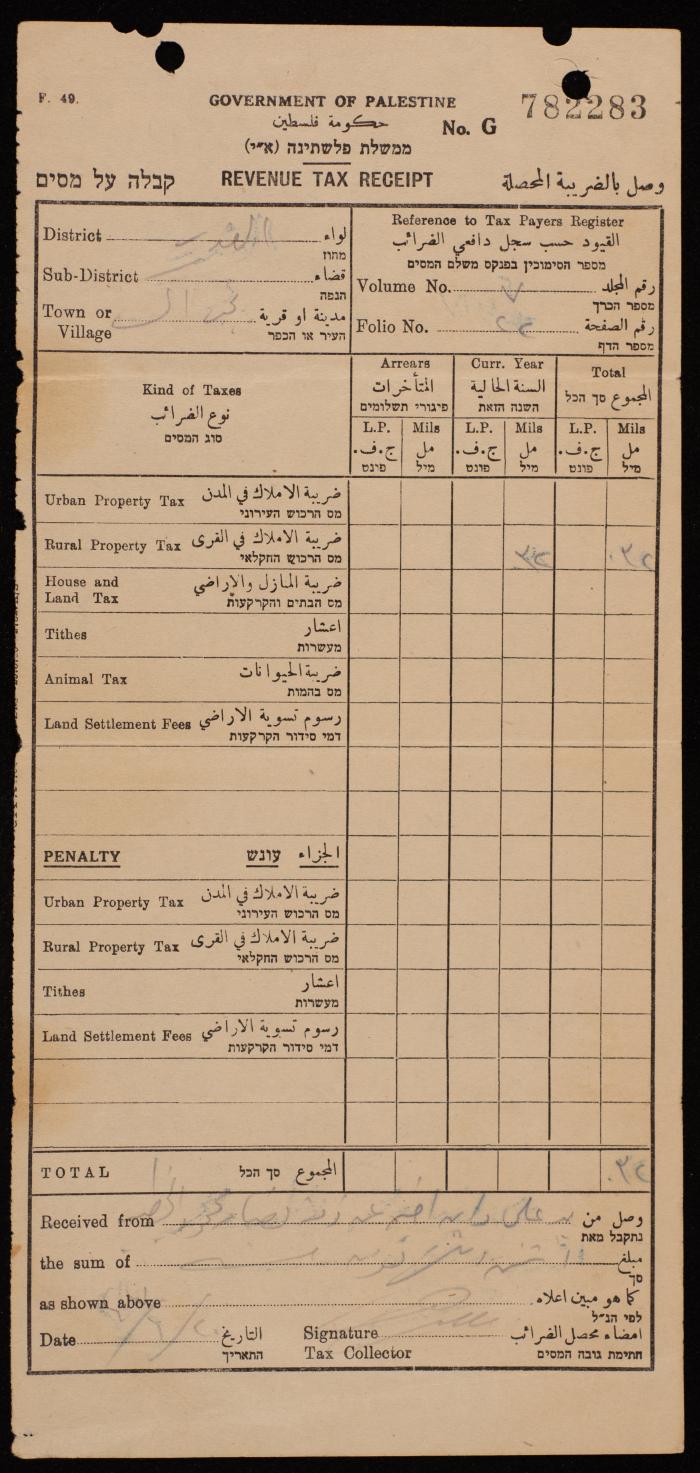 F. 49.
GOVERNMENT OF PALESTINE
782283
حكومة فلسطين
No. G
ממשלת פלשתינה (א״י)
קבלה על מסים REVENUE TAX RECEIPT وصل بالضريبة المحصلة
District لواء
מחוז
Sub-District قضاء
הנפה
Town or Village مدينة او قرية
העיר או הכפר
Reference to Tax Payers Register
القيود حسب سجل دافعي الضرائب
מספר הסימוכין בפנקס משלם המסים
Volume No. رقم المجلد
מספר הכרך
Folio No. رقم الصفحة
מספר הדף
Kind of Taxes
نوع الضرائب
סוג המסים
Arrears
المتأخرات
פיגורי תשלומים
Curr. Year
السنة الحالية
השנה הזאת
Total
المجموع סך הכל
L.P. Mils L.P. Mils L.P. Mils
ج.ف. مل ج.ف. مل ج.ف. مل
פונט מיל פונט מיל פונט מיל
Urban Property Tax ضريبة الاملاك في المدن
מס הרכוש העירוני
Rural Property Tax ضريبة الاملاك في القرى
מס הרכוש החקלאי
House and Land Tax ضريبة المنازل والاراضي
מס הבתים והקרקעות
Tithes اعشار
מעשרות
Animal Tax ضريبة الحيوانات
מס בהמות
Land Settlement Fees رسوم تسوية الاراضي
דמי סידור הקרקעות
PENALTY עונש الجزاء
Urban Property Tax ضريبة الاملاك في المدن
מס הרכוש העירוני
Rural Property Tax ضريبة الاملاك في القرى
מס הרכוש החקלאי
Tithes اعشار
מעשרות
Land Settlement Fees رسوم تسوية الاراضي
דמי סידור הקרקעות
TOTAL סך הכל المجموع
Received from وصل من
נתקבל מאת
the sum of مبلغ
סך
as shown above كما هو مبين اعلاه
לפי הנ״ל
Date التاريخ
התאריך
Signature امضاء محصل الضرائب
Tax Collector חתימת גובה המסים